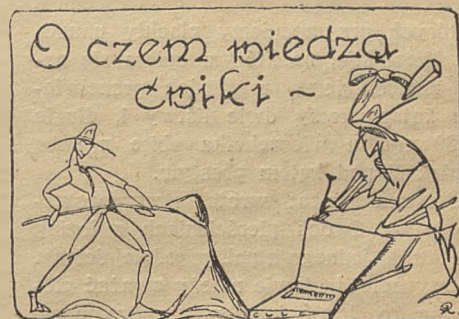 O czem wiedzą
ćwiki ~